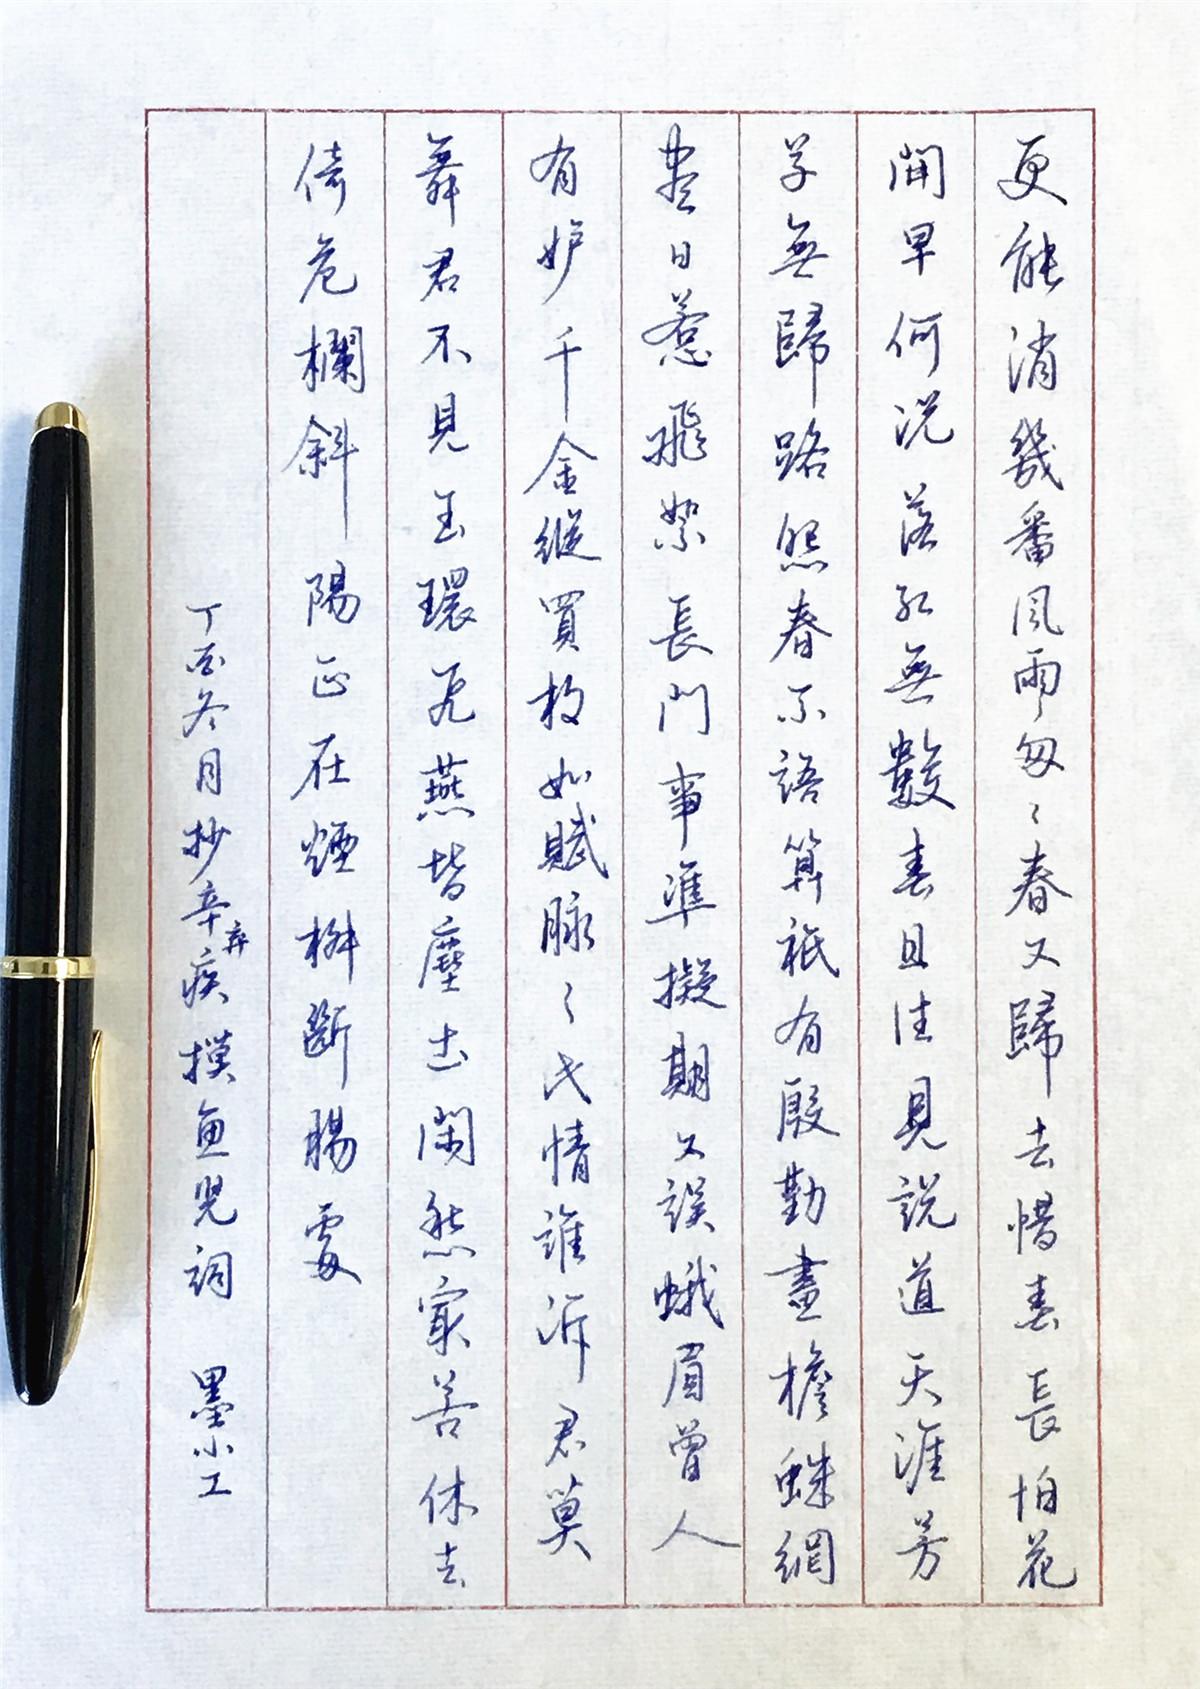 更能消幾番風雨匆々春又歸去惜春長怕花
開早何况落紅無數春且住見説道天涯芳
草無歸路怨春不語算衹有殷勤畫檐蛛網
盡日惹飛絮長門事準擬期又誤蛾眉曾人
有妒千金縱買枚如賦脉々此情誰訴君莫
舞君不見玉環飛燕皆塵土閑愁最苦休去
倚危欄斜陽正在煙柳斷腸處
丁酉冬月抄辛棄疾摸魚兒詞 墨小工